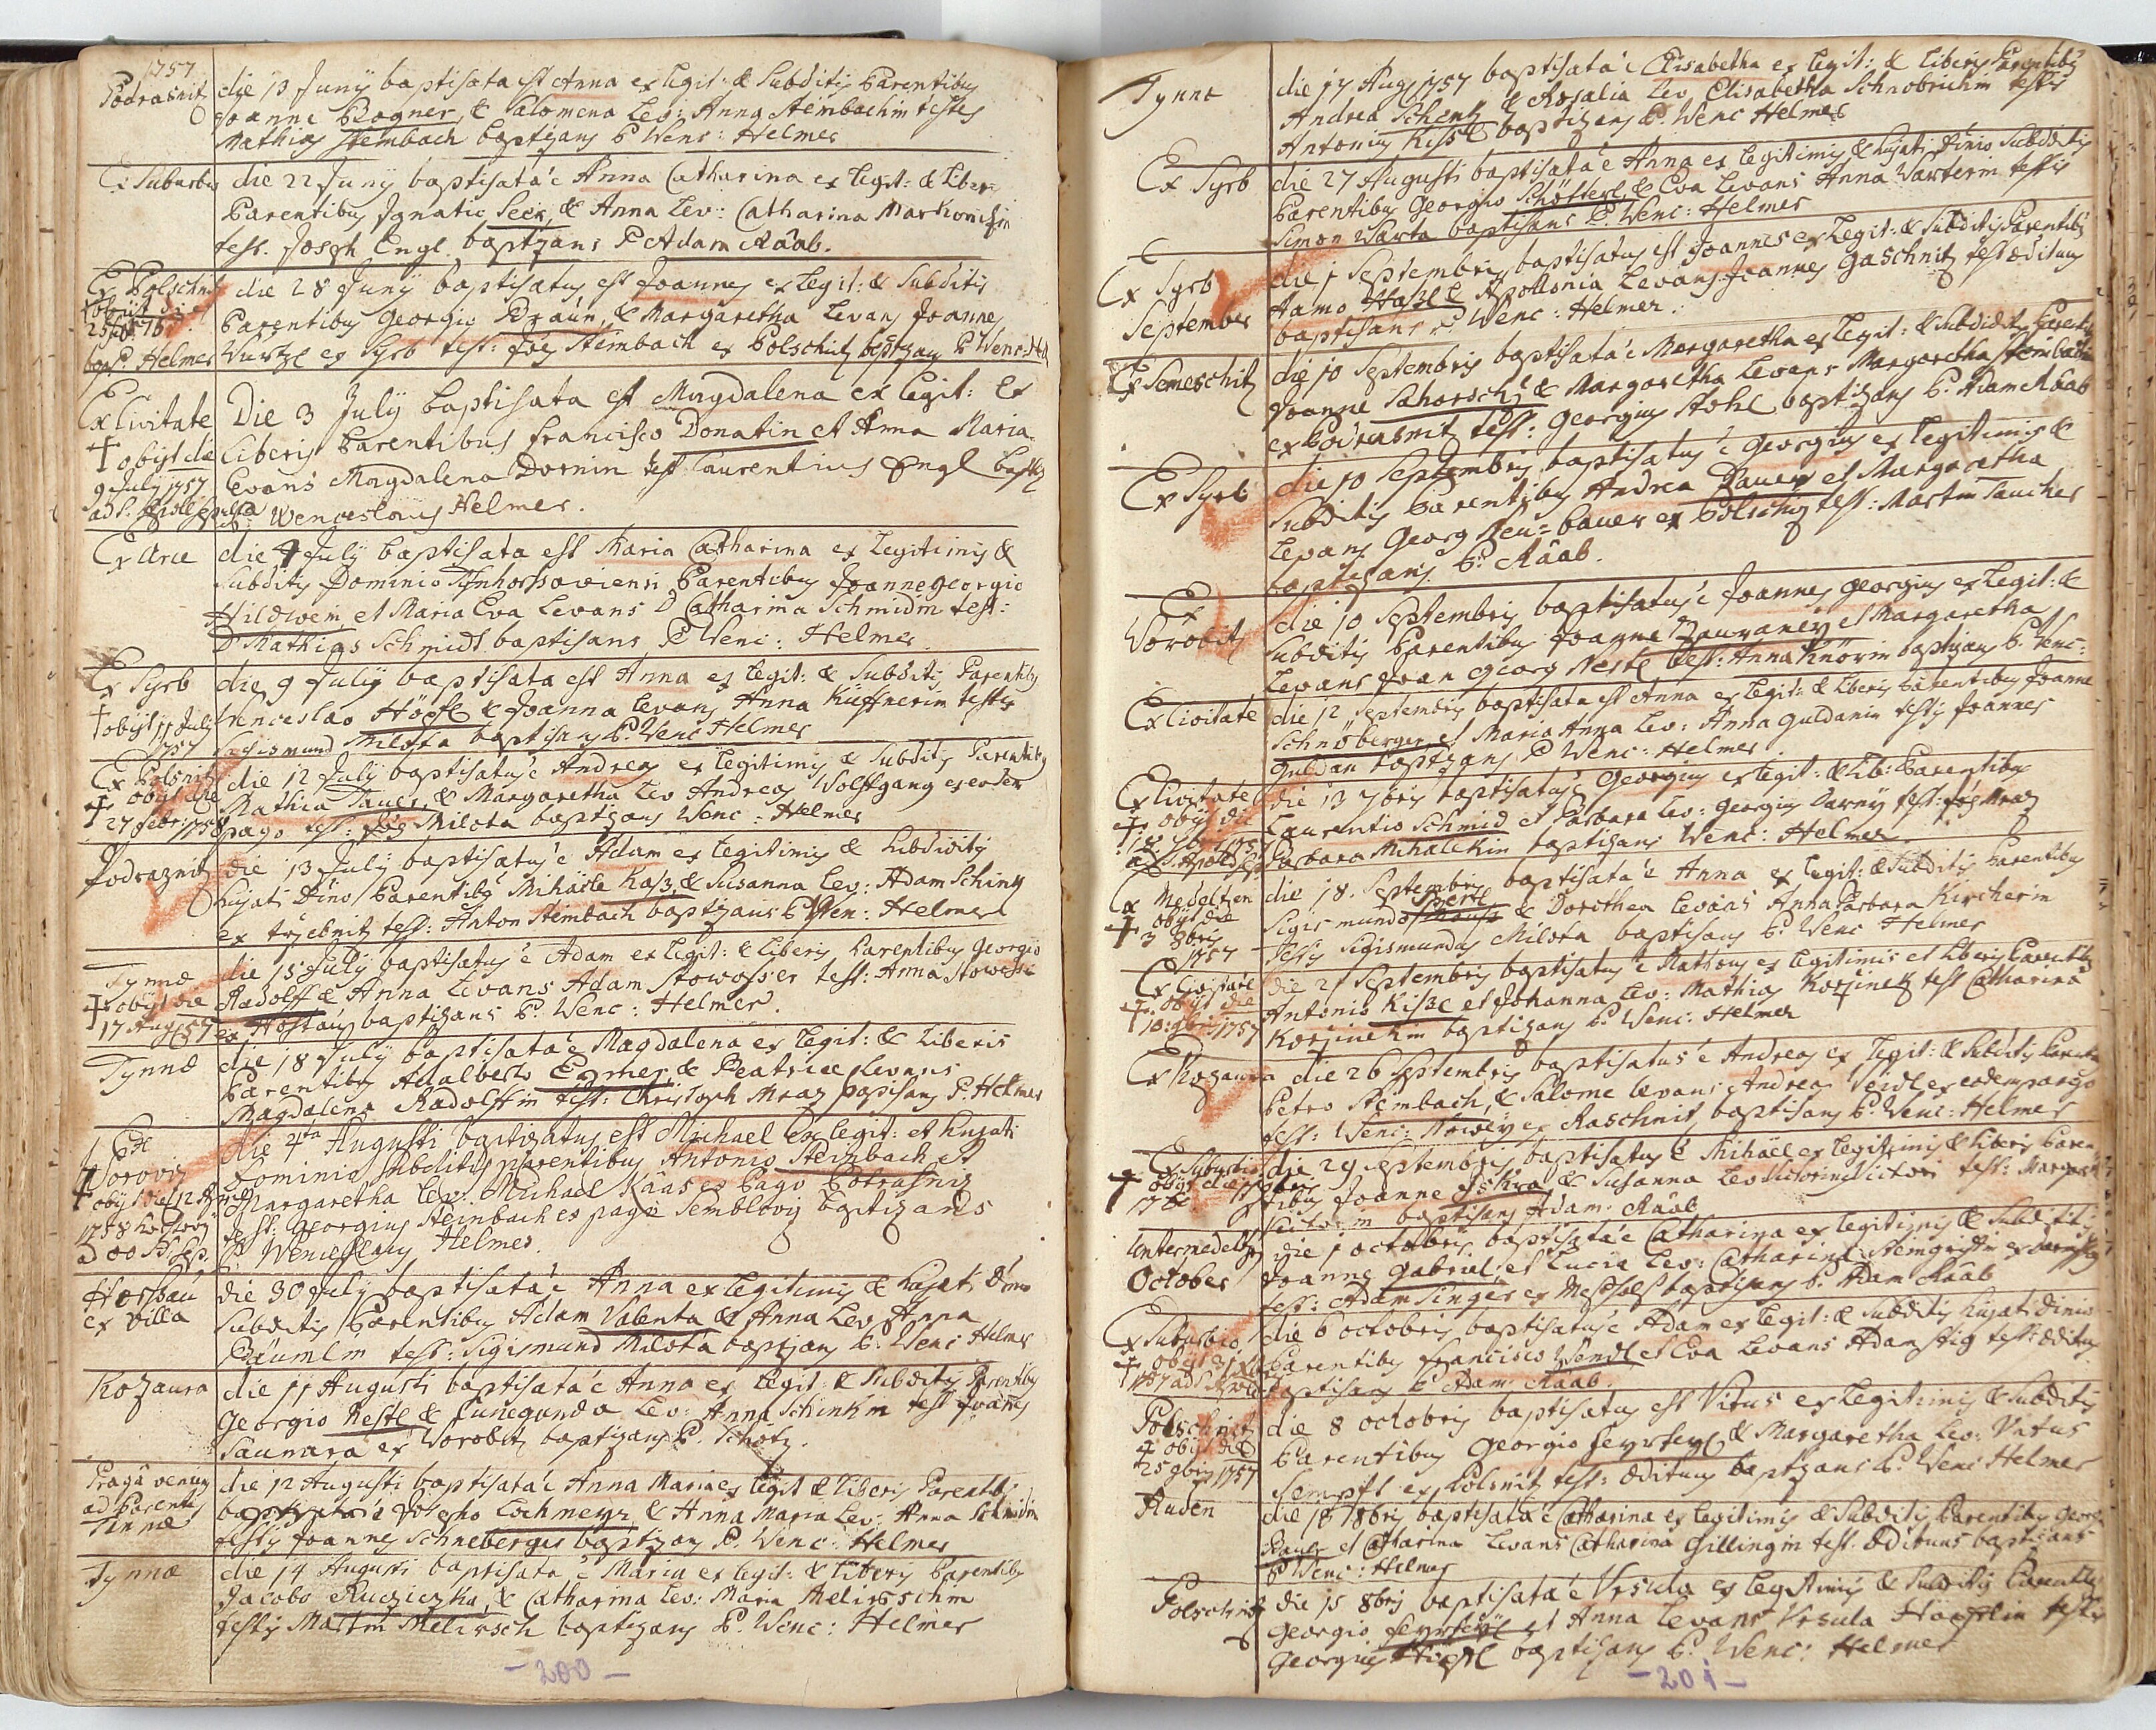 1757
Podrasnitz die 13 Junij baptisata est Anna ex legit: & Subditis Parentibus
Joanne Rogner, & Salomena Lev: Anna Steinbachin testes
Mathias Steinbach baptizans P. Wenc: Helmer
Ex Suburbio die 22 Junij baptisata é Anna Catharina ex legit: & Liberis
Parentibus Ignatio Seer, & Anna Lev: Catharina
test. Joseph Engl. baptizans P Adam Räab.
Ex Polschnitz die 28 Junij baptisatus est Joannes ex legit: & Subditis
Parentibus Georgio Braun, & Margaretha Levans Joannes
bapt. Helmer Wurtzl ex Syrb test: Jos Steinbach ex Polschitz baptizans P Wenc: Hel
Ex Civitate Die 3 July baptisata est Magdalena ex legit: &
† obijt die Liberis Parentibus Francisco Donatin et Anna Maria
9 July 1757 Levans Magdalena Dornin test Laurentius Engl baptiz
P. Wenceslaus Helmer.
Ex Arce die 4 July baptisata est Maria Catharina ex legitimis &
Subditis Dominio Parentibus Joanne Georgio
Hildwein, et Maria Eva Levans D Catharina Schmidin test:
D Mathias Schmidt baptisans P Wenc: Helmer
Ex Syrb die 9 Julij baptisata est Anna ex legit: & Subditis Parentibus
† obijt 11 July Wenceslao Höpfl & Joanna Levans Anna Küffnerin testis
1757 Sigismund Milota baptisans P. Wenc Helmer
Ex Polsnitz die 12 July baptisatus é Andreas ex legitimis & Subditis Parentibus
† obijt die Mathia Tauer, & Margaretha Lev Andreas Wolffgang ex eodem
27 Febr: 1758 pago test: Jos Milota baptizans Wenc: Helmer
Podraznitz die 13 July baptisatus é Adam ex legitimis & Subditis
hujati Dino Parentibus Mihaele Kasz, & Susanna Lev: Adam Schink
ex trzebnitz test: Anton Steinbach baptizans P Wen: Helmer
Tynnæ die 15 July baptisatus é Adam ex legit: & Liberis Parentibus Georgio
† obijt die Radolff & Anna Levans Adam Stowasser test: Anna
17 Aug 57 ex Hostau baptizans P. Wenc: Helmer.
Tynnæ die 18 July baptisata é Magdalena ex legit: & Liberis
Parentibus Adalberto Exner, & Beatrice Levans
Magdalena Radolffin test: Christoph Mraz baptisans P. Helmer
Ex die 4ta Augusti baptizatus est Michael ex legit: et hujati
Worowiz Dominio subditis parentibus Antonio Steinbach et
† obijt Margaretha Lev: Michael Kaas ex pago Potrasniz
1758 test: Georgius Steinbach ex pago Semblowiz baptizans
P. Wenceslaus Helmer.
Horssau die 30 July baptisata é Anna ex legitimis & hujati Dino
ex villa Subditis Parentibus Adam Valenta & Anna Lev Anna
Bäumlin test: Sigismund Milota baptizans P. Wenc Helmer
Kozaura die 11 Augusti baptisata é Anna ex legit & Subditis Parentibus
Georgio Nestl & Cunegunda Lev: Anna Schinkin test Joannes
Saumara ex Worobitz baptizans P. Schotz.
Praga veniens die 12 Augusti baptisata é Anna Maria ex legit & Liberis Parentibus
ad Parentes baptisata é Josepho Lochmeyr, & Anna Maria Lev: Anna Schmidin
Tinnæ testis Joannes Schneberger baptizans P. Wenc: Helmer
Tynnæ die 14 Augusti baptisata é Maria ex legit: & Liberis Parentibus
Jacobo Ruziczka, & Catharina Lev: Maria Melirschin
testis Martin Melirsch baptizans P. Wenc: Helmer
- 200 -
Tynnæ die 17 Aug 1757 baptisata é Elisabetha ex legit: & Liberis Parentibus
Andrea Schenk & Rosalia Lev Elisabetha Schnobrichin testis
Antonius Kissl baptizans P. Wenc Helmer
Ex Syrb die 27 Augusti baptisata é Anna ex legitimis & hujati Dinio Subditis
Parentibus Georgio Schöfferl, & Eva Levans Anna Warterin testis
Simon Warta baptisans P. Wenc: Helmer
Ex Syrb die 1 Septembris baptisatus est Joannes ex legit: & Subditis Parentibus
September Adamo Haszl & Apollonia Levans Joannes Gaschnitz test ædituus
baptisans P. Wenc: Helmer.
Ex Semeschitz die 10 Septembris baptisata é Margaretha ex legit: & Subditis Parentibus
Joanne Sahorsch, & Margaretha Levans Margaretha Steinbachin
ex Podrasnitz test: Georgius Stohl baptizans P. Adam Räab
Ex Syrb die 10 Septembris baptisatus é Georgius ex legitimis &
Subditis Parentibus Andrea Bauer et Margaretha
Levans Georg Neu=bauer ex Polschnitz test: Martin Taucher
baptizans P. Räab.
Ex die 10 Septembris baptisatus é Joannes Georgius ex legit: &
Worobitz Subditis Parentibus Joanne et Margaretha
Levans Joan Georg Nestl test: Anna Knorin baptizans P. Wenc:
Ex Civitate die 12 Septembris baptisata est Anna ex legit: & Liberis Parentibus Joanne
Schnöberger et Maria Anna Lev: Anna Guldanin testis Joannes
Guldan baptizans P Wenc: Helmer.
Ex Civitate die 13 7bris baptisatus é Georgius ex legit: & Lib: Parentibus
† obijt die Laurentio Schmid et Barbara Lev: Georgius test: Jos Mraz
Barbara Mihalekin baptizans Wenc: Helmer
Ex Medeltzen die 18. Septembris baptisata é Anna ex legit: & Subditis Parentibus
† obijt die Sigismundo Sperl & Dorothea Levans Anna Barbara Kircherin
3 8bris 1757 testis Sigismundus Milota baptisans P. Wenc Helmer
Ex Civitate die 21 Septembris baptisatus é Mathias ex legitimis et Liberis Parentibus
† obijt die Antonio Kisze et Johanna Lev: Mathias Korzinek test Catharina
10: 1757 Korzinekin baptizans P. Wenc: Helmer
Ex Kozaura die 26 Septembris baptisatus é Andreas ex legit: & Subditis Parentibus
Petro Steinbach, & Salome Levans Andreas Veidl ex eodem pago
test: Wenc: ex Raschnitz baptisans P. Wenc: Helmer
Ex Suburbio die 29 Septembris baptisatus é Mihäel ex legitimis & Liberis Paren-
† obijt die tibus Joanne Iskra & Susanna Lev Victorinus Victori test:
baptisans Adam Räab
Untermedelzen die 1 octobris baptisata é Catharina ex legitimis & Subditis
October Joanne Gabriel, et Lucia Lev: Catharina
test: Adam Singer ex baptisans P. Adam Räab
Ex Suburbio die 6 octobris baptisatus é Adam ex legit: & Subditis hujati Dinio
† obijt 31 Parentibus Francisco Wendl et Eva Levans Adam Stig test: ædituus
1757 baptisans P Adam Räab.
Polschnitz die 8 octobris baptisatus est Vitus ex legitimis & Subditis
† obijt die Parentibus Georgio & Margaretha Lev: Vitus
25 9bris 1757 Sempft ex Polsnitz test: Ædituus baptizans P. Wenc Helmer
Auden die 18 8bris baptisata é Catharina ex legitimis & Subditis Parentibus Georgio
et Catharina Levans Catharina Schillingin test: Ædituus baptisans
P Wenc: Helmer
Polschnitz die 15 8bris baptisata é Ursula ex legitimis & Subditis Parentibus
Georgio et Anna Levans Ursula Höpflin testis
Georgius Höpfl baptisans P. Wenc: Helmer
- 201 -